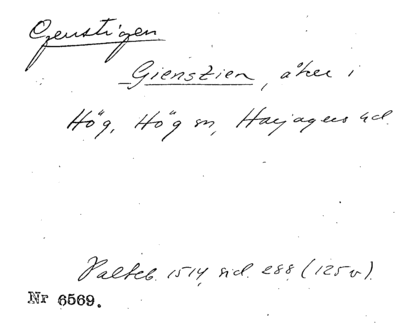 Genstigen
Gienstien, åker i
Hög, Hög sn, Harjagers hd.
Palteb. 1514, sid. 288 (125 v).
Nr 6569.